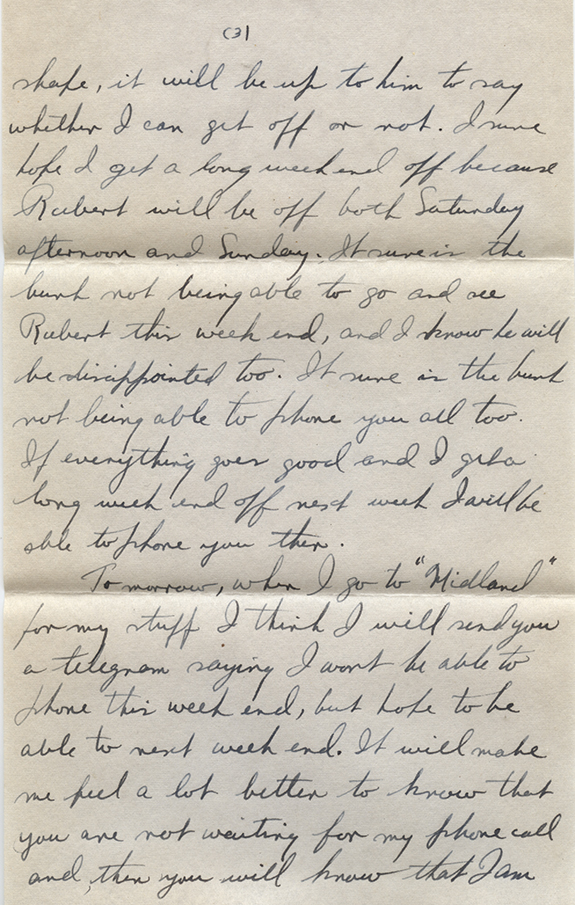 (3)
shape, it will be up to him to say
whether I can get off or not. I sure
hope I get a long week end off because
Rubert will be off both Saturday
afternoon and Sunday. It sure is the
bunk not being able to go and see
Rubert this week end, and I know he will
be disappointed too. It sure is the bunk
not being able to phone you all too.
If everything goes good and I get a
long week end off next week I will be
able to phone you then.
Tomorrow, when I go to "Midland"
for my stuff I think I will send you
a telegram saying I wont be able to
phone this week end, but hope to be
able to next week end. It will make
me feel a lot better to know that
you are not waiting for my phone call
and, then you will know that I am